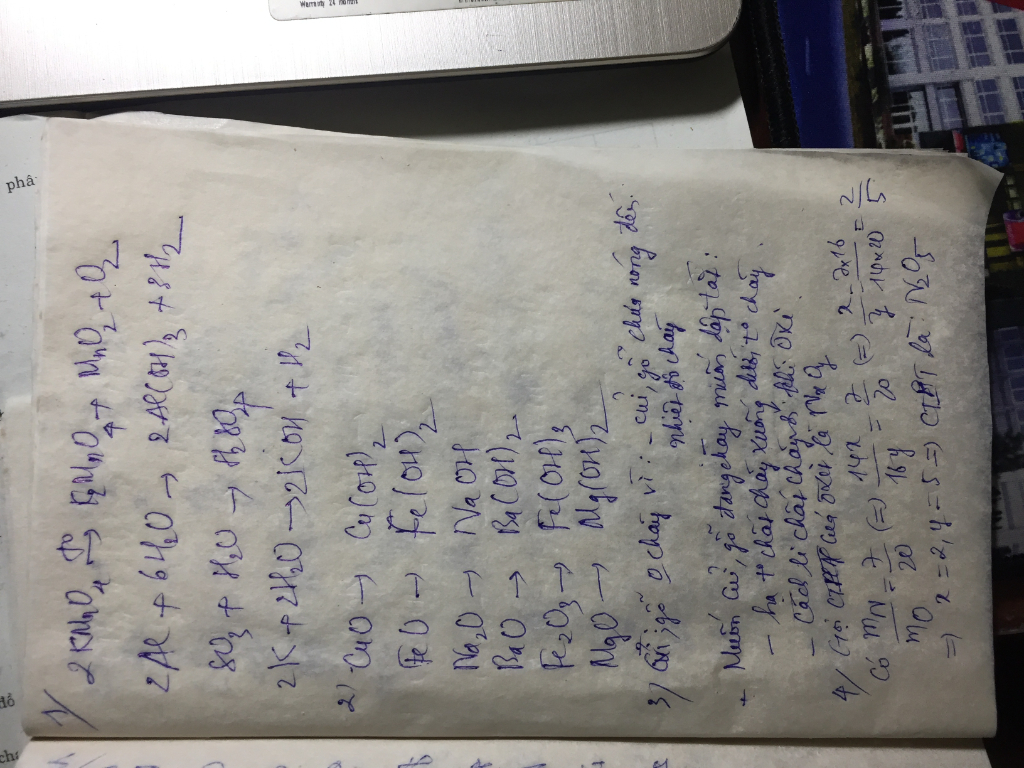 Warranty 24 months
phâ
đổ
1/
2KMnO4 t° → K2MnO4 + MnO2 + O2
2Al + 6H2O → 2Al(OH)3 + 3H2
SO3 + H2O → H2SO4
2K + 2H2O → 2KOH + H2
2) CuO → Cu(OH)2
FeO → Fe(OH)2
Na2O → NaOH
BaO → Ba(OH)2
Fe2O3 → Fe(OH)3
MgO → Mg(OH)2
3) Củi, gỗ o cháy vì: - củi, gỗ chưa nóng đến
nhiệt độ cháy
+ Muốn củi, gỗ đang cháy muốn dập tắt:
- hạ t° chất cháy xuống dưới t° cháy
- Cách li chất cháy với oxi
4/ Gọi CTHH của oxit là NxOy
Có mN/mO = 7/20 (=) 14x/16y = 7/20 (=) x/y = 7x16/14x20 = 2/5
=) x = 2, y = 5 =) CTHH là N2O5